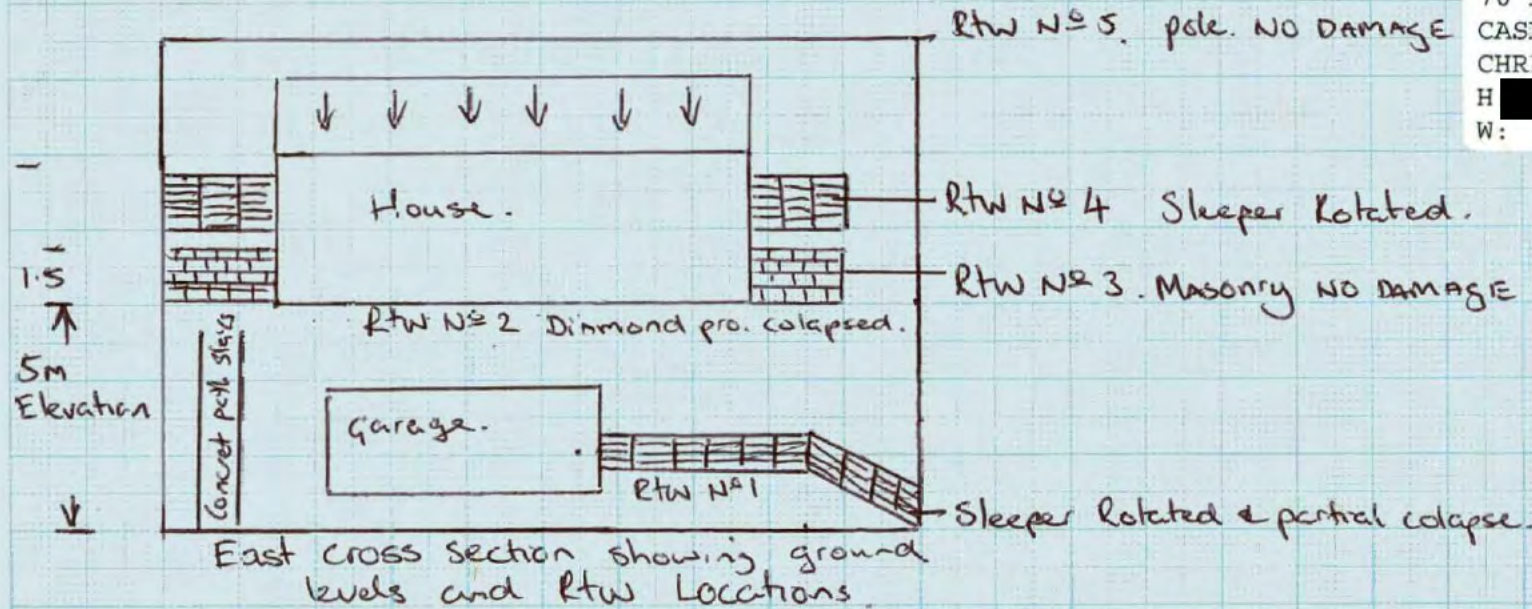 RtW Nº 5. pole. NO DAMAGE
CAS
CHR
H
W:
House.
RtW Nº 4 Sleeper Rotated.
1.5
RtW Nº 3. Masonry NO DAMAGE
RtW Nº 2 Diamond pro. colapsed.
5m
Elevation
Concret path stairs
Garage.
RtW Nº 1
Sleeper Rotated & partial colapse.
East cross section showing ground
levels and RtW Locations